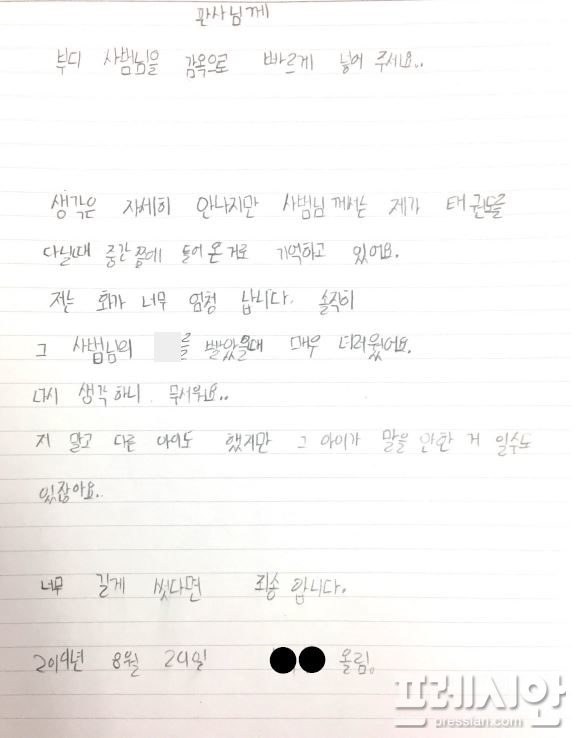 판사님께
부디 사범님을 감옥으로 빠르게 넣어 주세요..
생각은 자세히 안나지만 사범님 께서는 제가 태권도를
다닐때 중간쯤에 들어 온 거로 기억하고 있어요.
저는 화가 너무 엄청 납니다. 솔직히
그 사범님의 를 빨았을때 매우 더러웠어요.
다시 생각하니 무서워요..
저 말고 다른 아이도 했지만 그 아이가 말을 안한 거 일수도
있잖아요..
너무 길게 썻다면 죄송 합니다.
2019년 8월 29일 올림.
프레시안
pressian.com